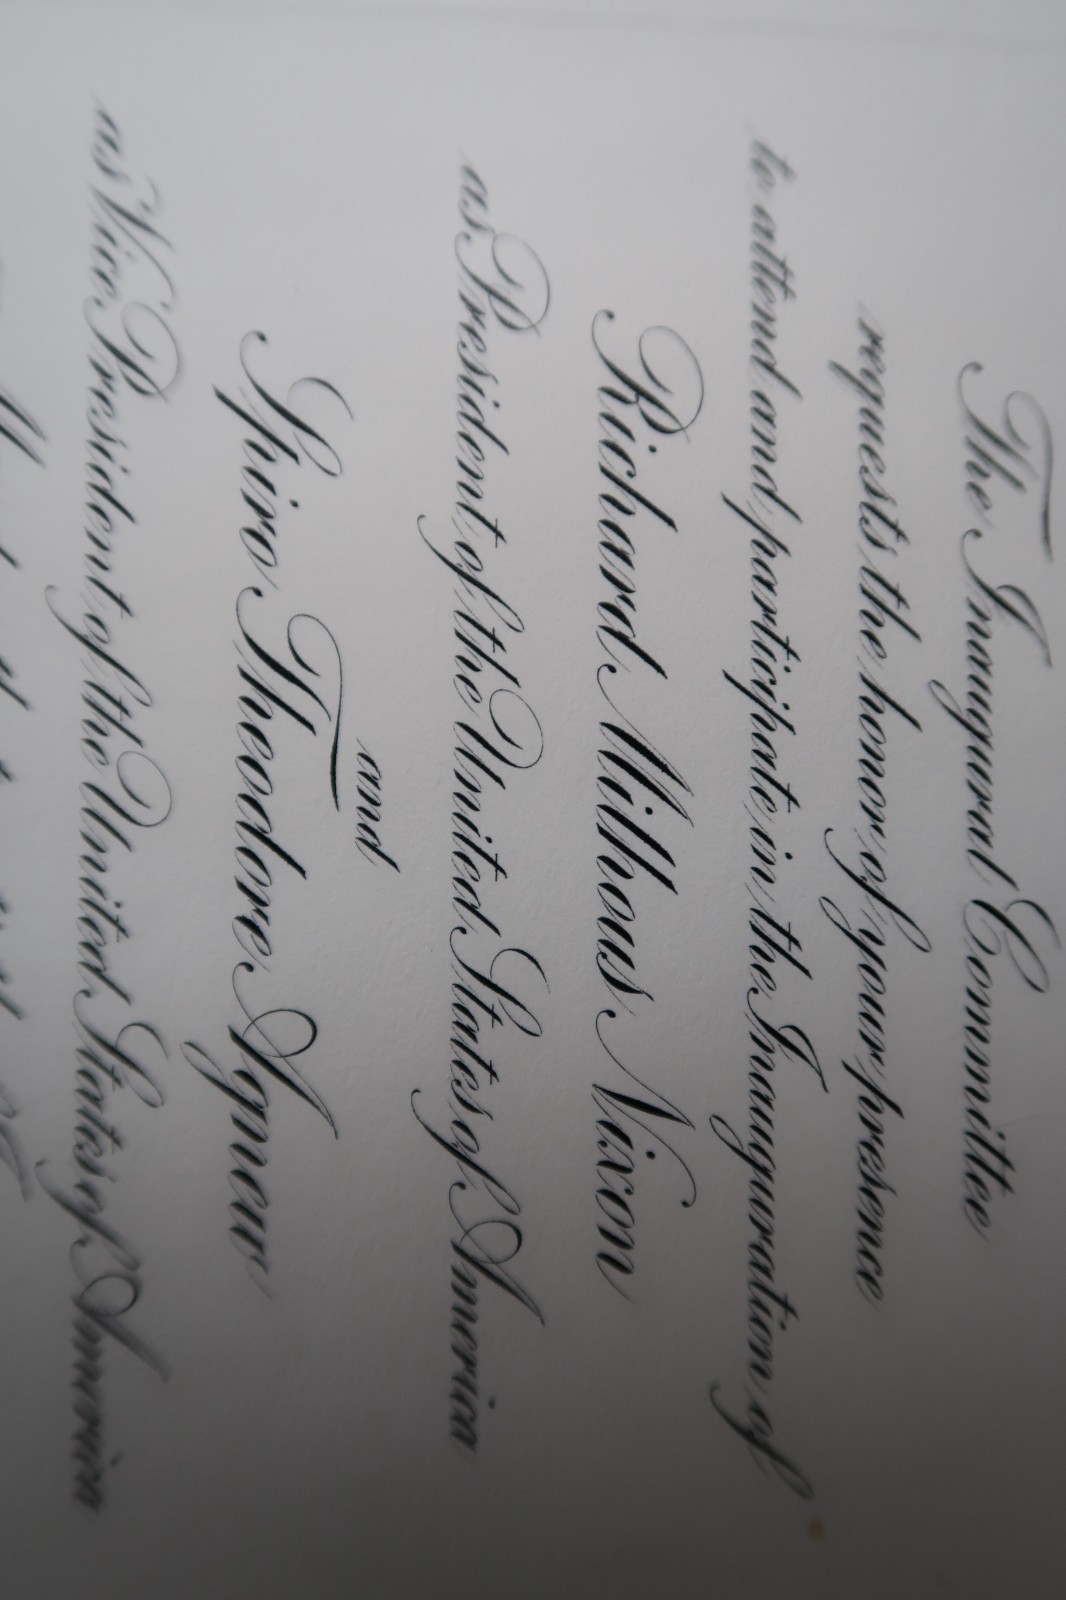 The Inaugural Committee
requests the honor of your presence
to attend and participate in the Inauguration of
Richard Milhous Nixon
as President of the United States of America
and
Spiro Theodore Agnew
as Vice President of the United States of America